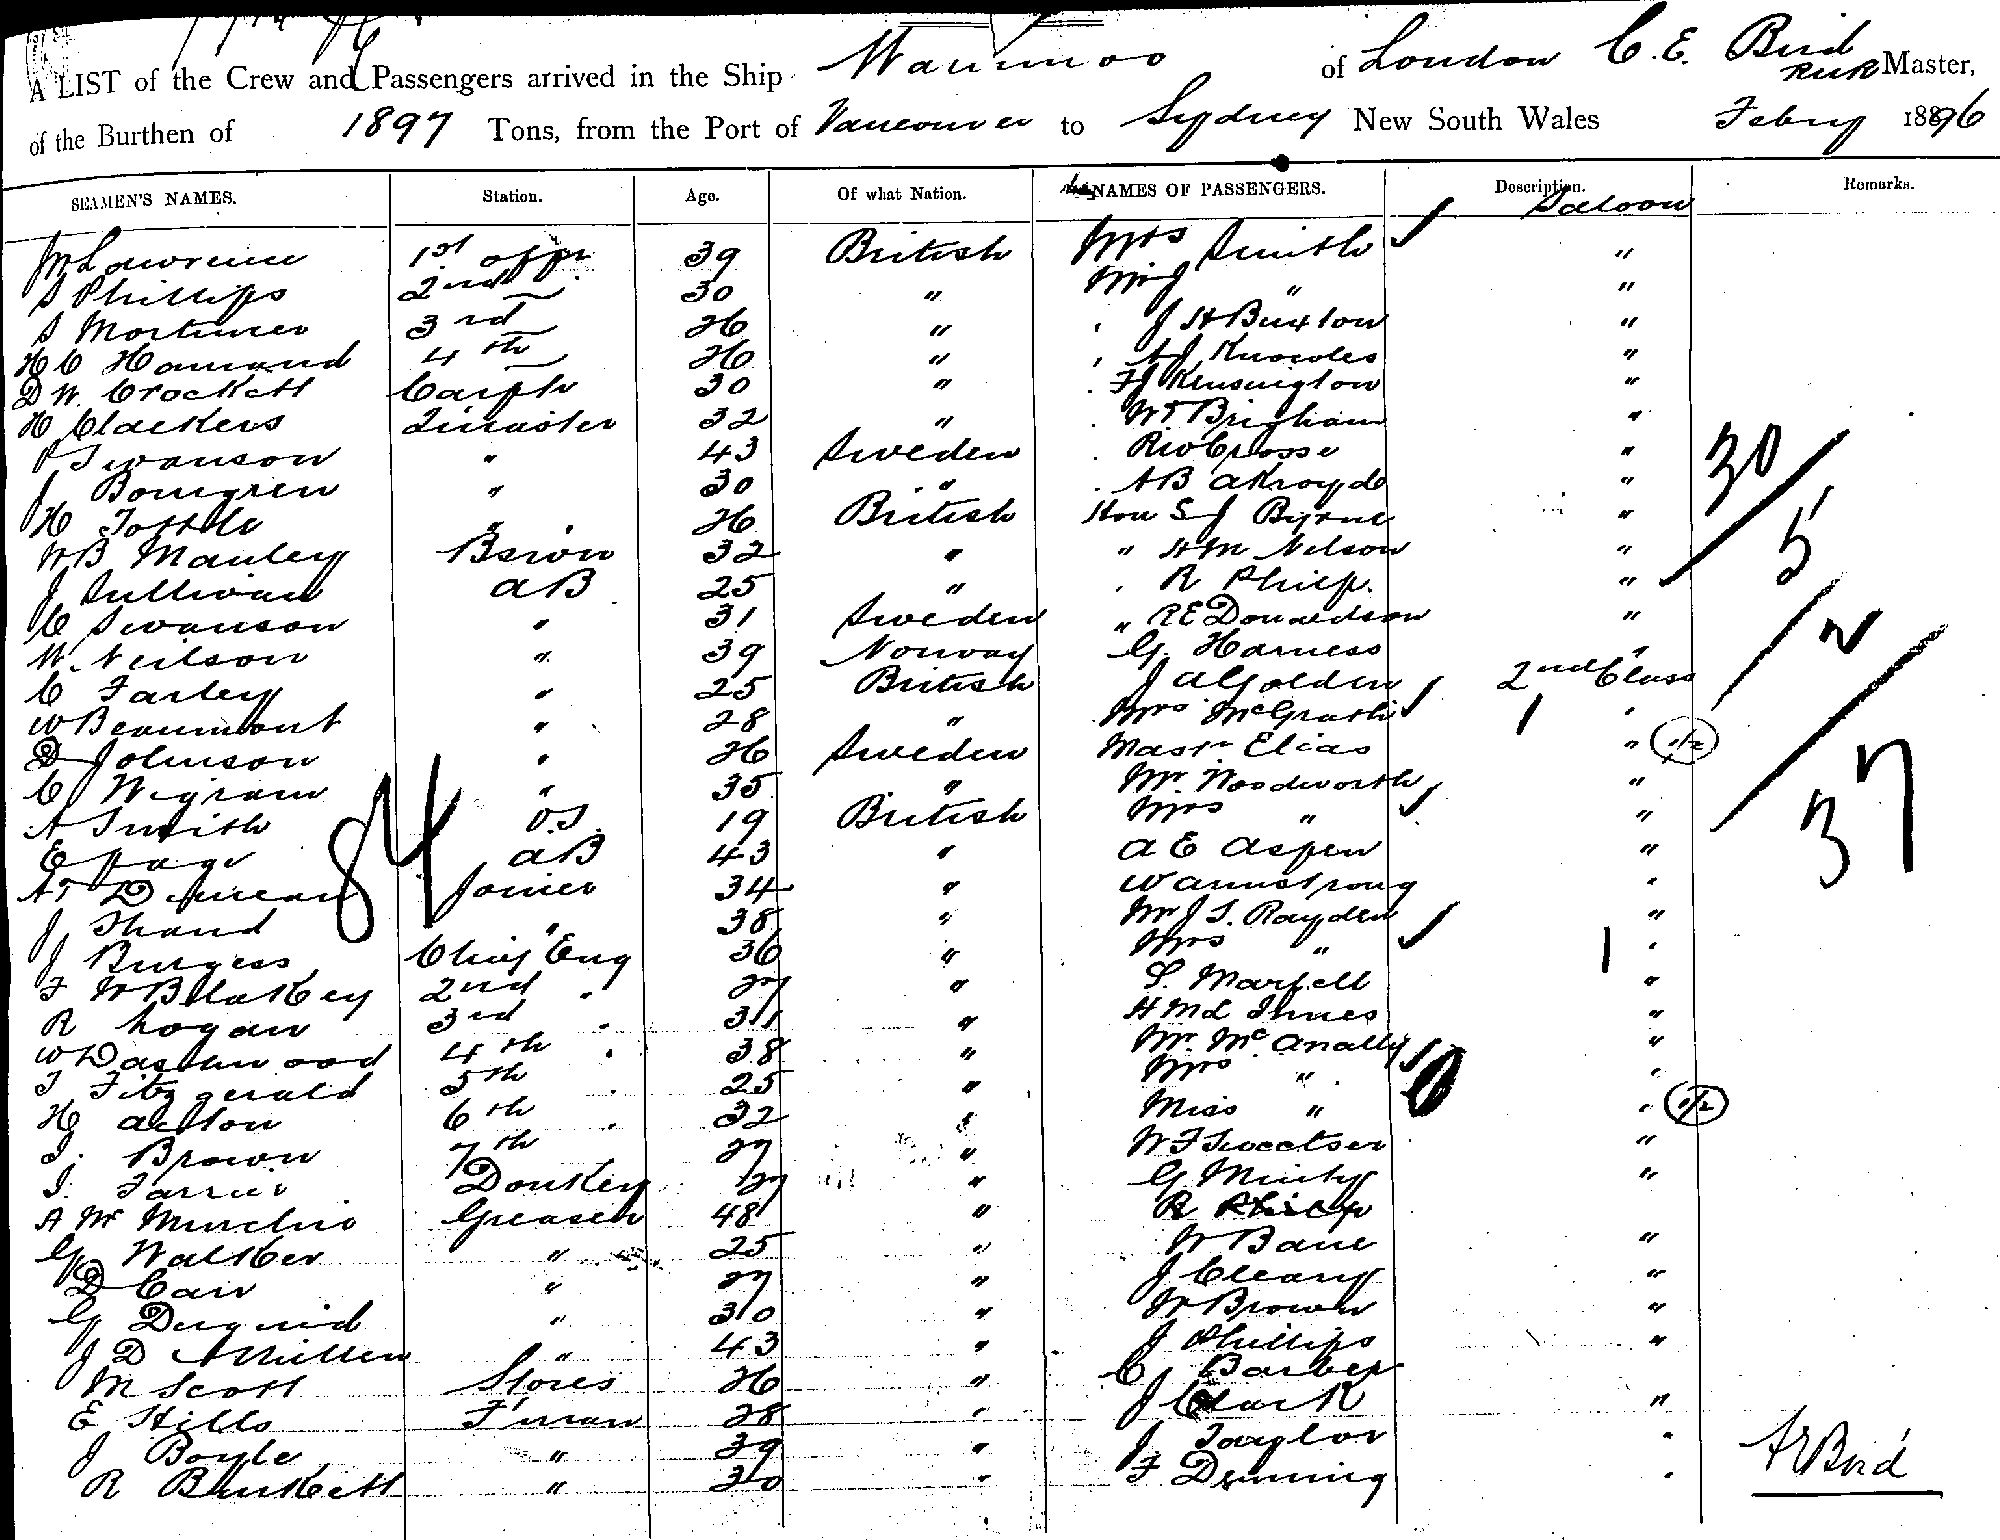 A LIST of the Crew and Passengers arrived in the Ship Warrimoo of London C. E. Bird RNR Master,
of the Burthen of 1897 Tons, from the Port of Vancouver to Sydney New South Wales Febry 1896
SEAMEN'S NAMES. Station. Age. Of what Nation. NAMES OF PASSENGERS. Description. Remarks.
Saloon
Lawrence 1st offr 39 British Mrs Smith "
S Phillips 2nd 30 " "
S Mortimer 3rd 26 " J H Buxton "
H C Hamand 4th 26 " A J Knowles "
D W. Crockett Carptr 30 " F J Kensington "
H Clackers 32 " W T Brigham "
Swanson " 43 Sweden "
J Bomgren " 30 " A B Akroyde "
H Tottle " 26 British Hon S J Byrne "
W B Manley Bswn 32 " " H M Nelson "
J Sullivan AB 25 " R Philp. "
C Swanson " 31 Sweden " R E Donaldson "
W. Neilson " 39 Norway G. Harness "
C Farley " 25 British J A Golden 2nd Class
W Beaumont " 28 " Mrs McGrath "
D Johnson " 26 Sweden Mastr Elias " 1/2
C Wigram " 35 " Mr Woodworth "
A Smith O.S. 19 British Mrs " "
E Page AB 43 " A E Aspen "
Duncan Joiner 34 " W Armstrong "
J Shand " 38 " Mr J S. Rayden "
J Burgess Chief Eng 36 " Mrs " "
F W Blakey 2nd " 27 " S. Martell "
R Logan 3rd " 31 " H McL Innes "
W Dashwood 4th " 38 " Mr McAnally "
T Fitzgerald 5th " 25 " Mrs " "
H Acton 6th " 32 " Miss " " 1/2
J. Brown 7th 27 " W F Sweetser "
J. Farrier Donkey 27 " G Minty "
A Mc Greaser 48 " R
G Walker " 25 " W Bane "
D Carr " 27 " J Cleary "
G Duguid " 30 " W Brown "
J D " 43 " J Phillips "
M Scott Stores 26 " C Barber
E Hills F'man 28 " J Clark "
J Boyle " 39 " J Taylor "
R " 30 " F Denning "
84
30
5
2
37
Bird